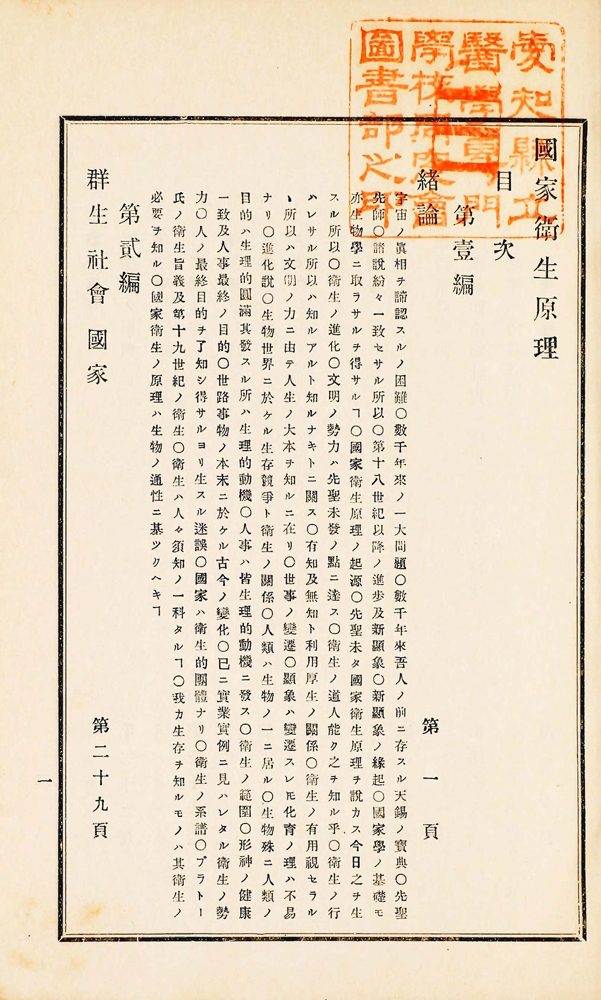 愛知縣立
醫學專門
學校
圖書部之印
國家衛生原理
目次
第壹編
緒論 第一頁
宇宙ノ眞相ヲ諦認スルノ困難〇數千年來ノ一大問題〇數千年來吾人ノ前ニ存スル天錫ノ寶典〇先聖
先師〇諸說紛々一致セサル所以〇第十八世紀以降ノ進步及新顯象〇新顯象ノ緣起〇國家學ノ基礎モ
亦生物學ニ取ラサルヲ得サルヿ〇國家衛生原理ノ起源〇先聖未タ國家衛生原理ヲ說カス今日之ヲ生
スル所以〇衛生ノ進化〇文明ノ勢力ハ先聖未發ノ點ニ達ス〇衛生ノ道人能ク之ヲ知ル乎〇衛生ノ行
ハレサル所以ハ知ルアルト知ルナキトニ關ス〇有知及無知ト利用厚生ノ關係〇衛生ノ有用視セラル
ヽ所以ハ文明ノ力ニ由テ人生ノ大本ヲ知ルニ在リ〇世事ノ變遷〇顯象ハ變遷スレモ化育ノ理ハ不易
ナリ〇進化說〇生物世界ニ於ケル生存競爭ト衛生ノ關係〇人類ハ生物ノ一ニ居ル〇生物殊ニ人類ノ
目的ハ生理的圓滿其發スル所ハ生理的動機〇人事ハ皆生理的動機ニ發ス〇衛生ノ範圍〇形神ノ健康
一致及人事最終ノ目的〇世路事物ノ本末ニ於ケル古今ノ變化〇已ニ實業實例ニ見ハレタル衛生ノ勢
力〇人ノ最終目的ヲ了知シ得サルヨリ生スル迷誤〇國家ハ衛生的團體ナリ〇衛生ノ系譜〇プラトー
氏ノ衛生旨義及第十九世紀ノ衛生〇衛生ハ人々須知ノ一科タルヿ〇我カ生存ヲ知ルモノハ其衛生ノ
必要ヲ知ル〇國家衛生ノ原理ハ生物ノ通性ニ基ツクヘキヿ
第貳編
群生 社會 國家 第二十九頁
一